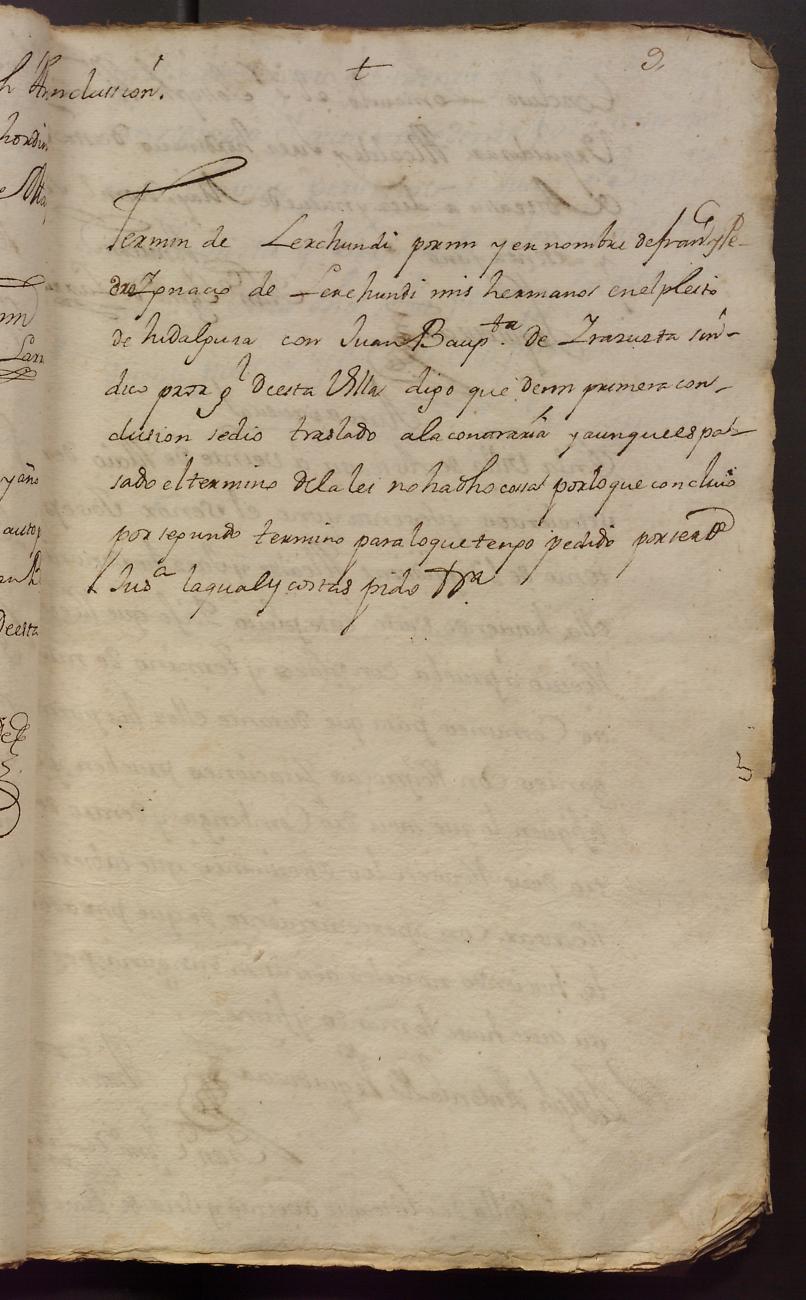 + 9
Fermin de Lerchundi por mi y en nombre de franco y Pe-
dro Ygnacio de Lerchundi mis hermanos en el pleito
de hidalguia con Juan Baupta. de Yrazusta sin-
dico pror gl Deesta Villa digo que de mi primera con-
clusion se dio traslado a la contraria y aunque es pas-
sado el termino de la lei no ha dho cossa por lo que concluio
por segundo termino para lo que tengo pedido por ser de
Jusa la qual y costas pido